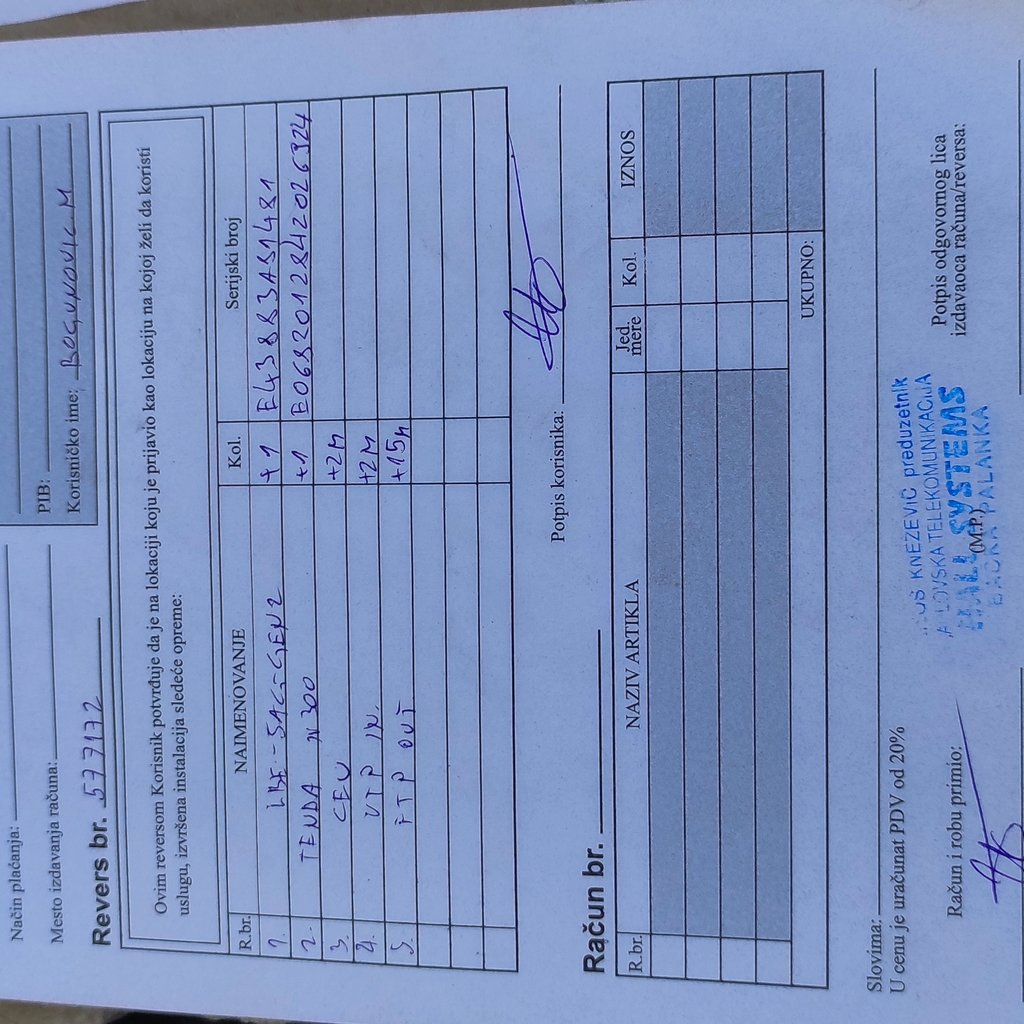 Način plaćanja:
Mesto izdavanja računa:
PIB:
Korisničko ime: BOGUNOVIC.M
Revers br. 577172
Ovim reversom Korisnik potvrđuje da je na lokaciji koju je prijavio kao lokaciju na kojoj želi da koristi
uslugu, izvršena instalacija sledeće opreme:
R.br. NAIMENOVANJE Kol. Serijski broj
1. LBE-5AC-GEN2 +1 E438838A51481
2. TENDA N300 +1 E0682012842026324
3. CEV +2M
4. UTP IN. +2M
5. FTP OUT +15M
Potpis korisnika:
Račun br.
R.br. NAZIV ARTIKLA Jed. mere Kol. IZNOS
UKUPNO:
Slovima:
U cenu je uračunat PDV od 20%
Račun i robu primio:
KNEŽEVIĆ preduzetnik
TELEKOMUNIKACIJA
SYSTEMS
(M.P.)
BAČKA PALANKA
Potpis odgovornog lica
izdavaoca računa/reversa: